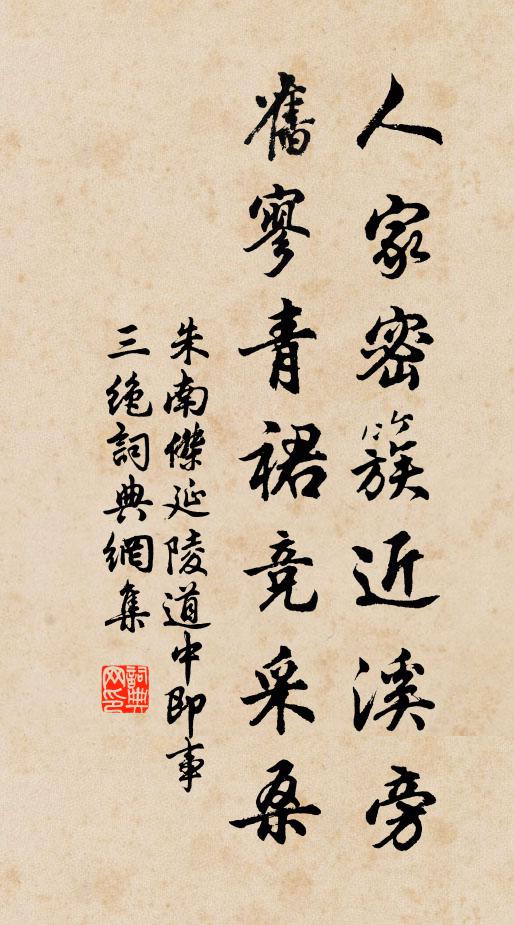 人家密簇近溪旁
舊寥青裙竞采桑
朱南傑延陵道中即事
三絶詞典網集
詞典
网印